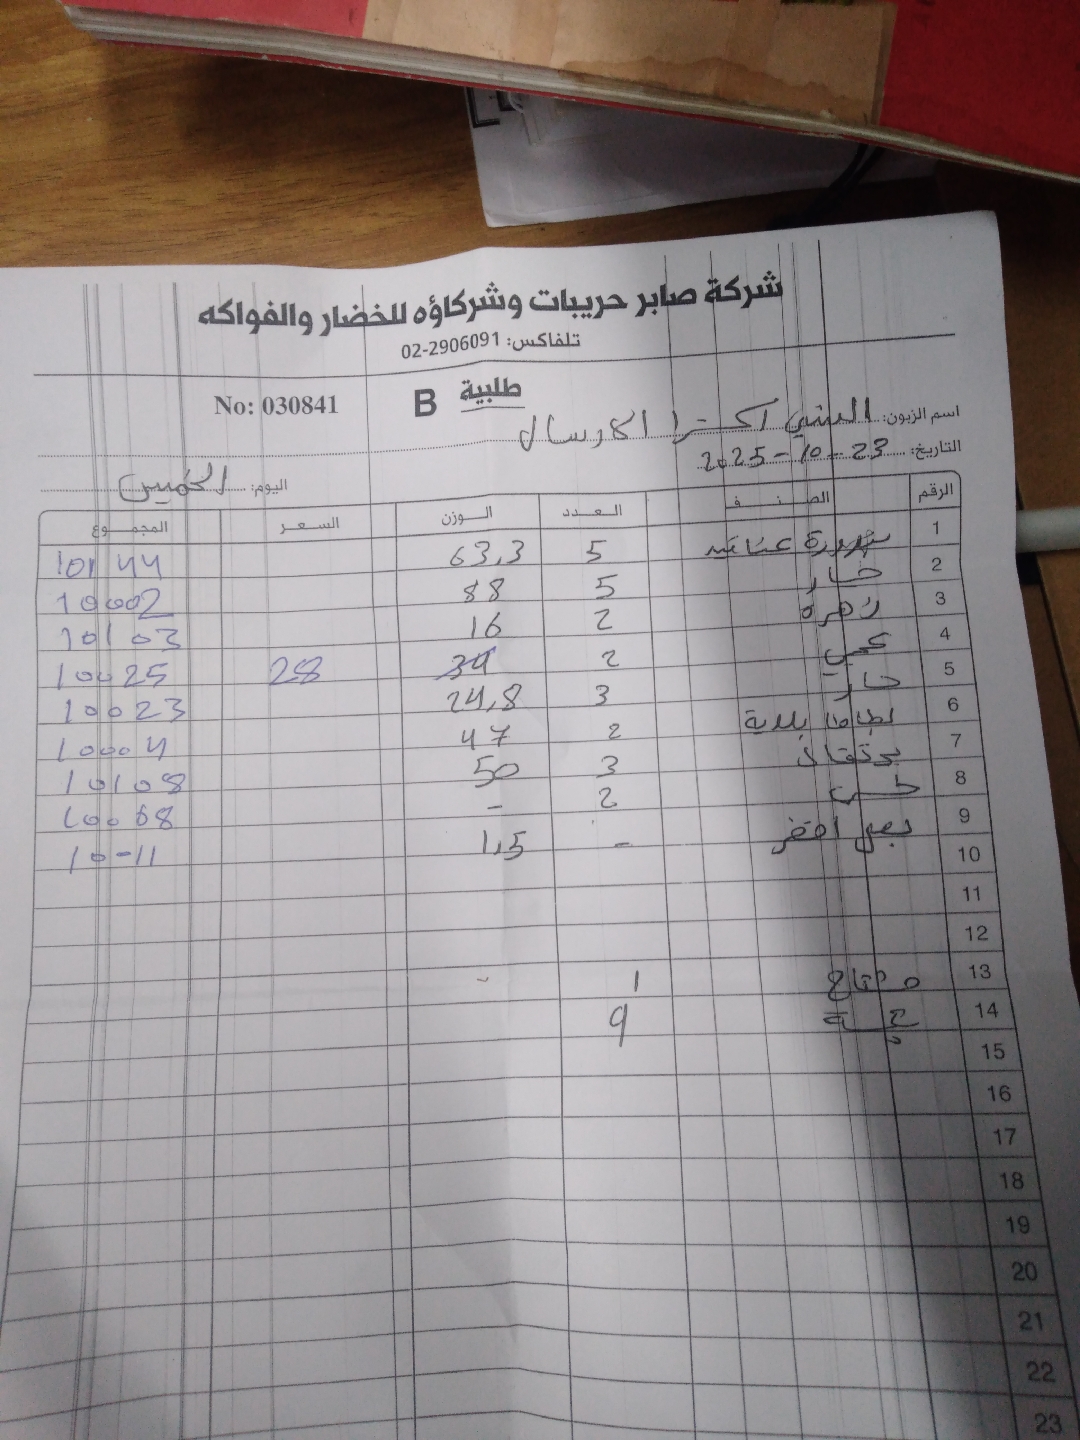 شركة صابر حريبات وشركاؤه للخضار والفواكه
تلفاكس: 02-2906091
طلبية B No: 030841
اسم الزبون: السني اكسترا الارسال
التاريخ: 23-10-2025
اليوم: الخميس
الرقم الصنف العدد الوزن السعر المجموع
1 بندورة عناقيد 5 63,3 10144
2 خيار 5 88 10002
3 زهرة 2 16 10103
4 2 34 28 10025
5 حار 3 24,8 10023
6 بطاطا بلدية 2 47 10004
7 برتقال 3 50 10108
8 خس 2 - 10068
9 بصل اخضر - 1,5 10-11
10
11
12
13 1 -
14 9
15
16
17
18
19
20
21
22
23